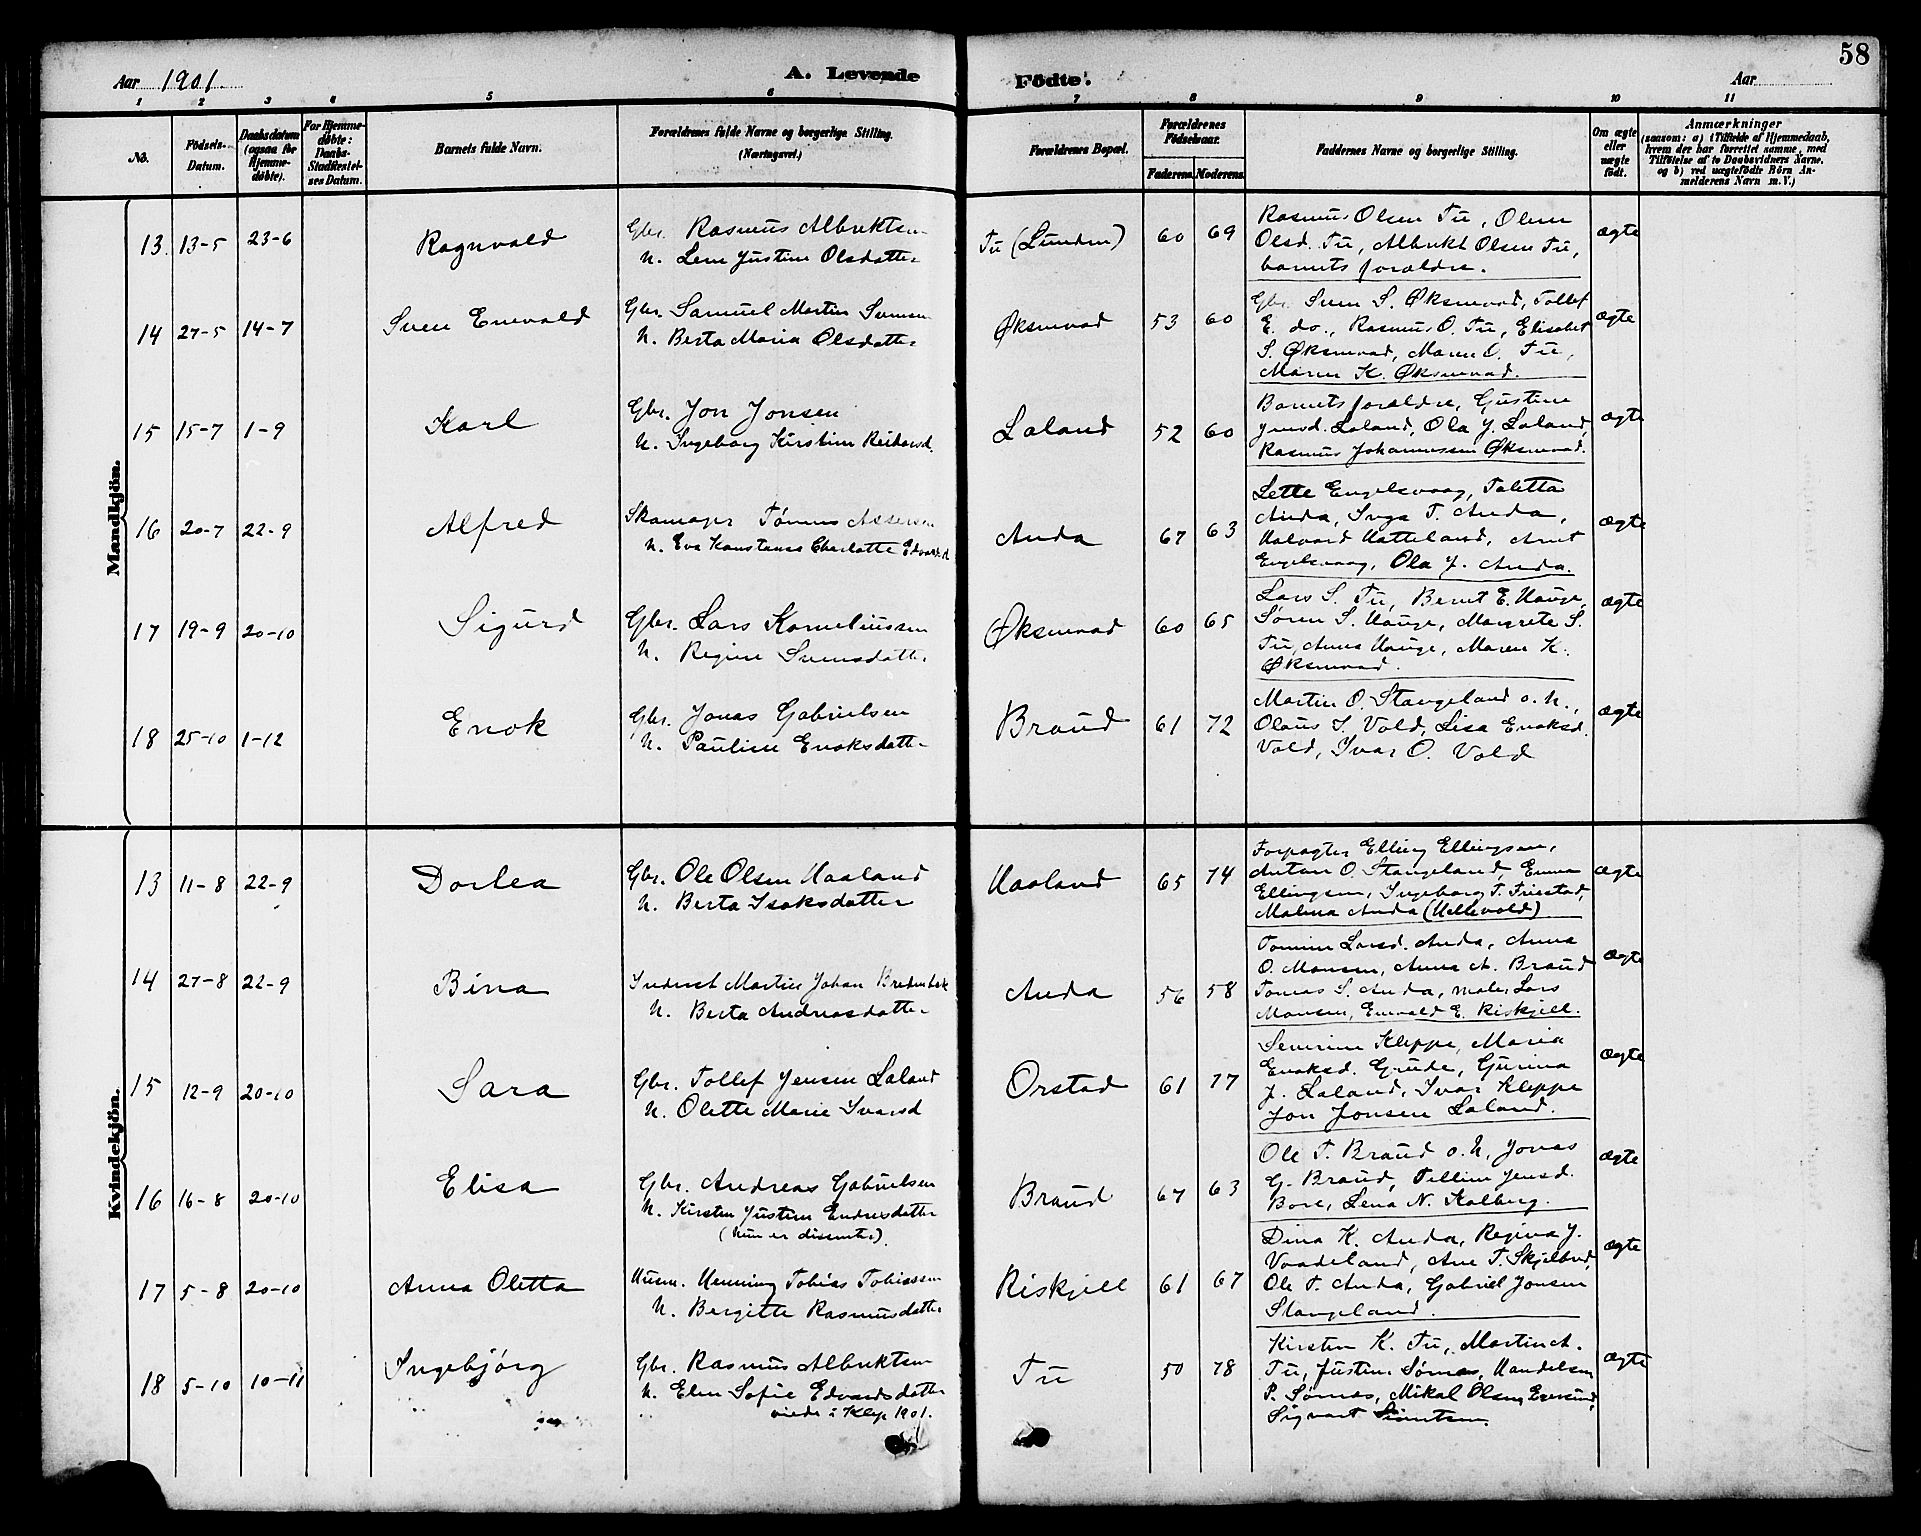 58
Aar 1901.
A. Levende Födte.
Aar
1 2 3 4 5 6 7 8 9 10 11
No.
Födsels-Datum.
Daabsdatum (ogsaa for Hjemme-döbte).
For Hjemme-döbte: Daabs-Stadfæstel-ses Datum.
Barnets fulde Navn.
Forældrenes fulde Navne og borgerlige Stilling.
(Næringsvei.)
Forældrenes Bopæl.
Forældrenes Födselsaar.
Faderens. Moderens.
Faddernes Navne og borgerlige Stilling.
Om ægte eller uægte födt.
Anmærkninger
(saasom: a) i Tilfælde af Hjemmedaab,
hvem der har forrettet samme, med
Tilföielse af to Daabsvidners Navne.
og b) ved uægtefödte Börn An-
melderens Navn m. V.)
Mandkjön.
13. 13-5 23-6 Ragnvald
Gbr. Rasmus Albriktsen
h. Lene Justine Olsdatter
Tu (Lunden) 60 69
Rasmus Olsen Tu, Olene
Olsd. Tu, Albrikt Olsen Tu,
barnets forældre.
ægte
14 27-5 14-7 Sven Enevald
Gbr. Samuel Martin Svensen
h. Berta Maria Olsdatter
Øksnevad 53 60
Gbr. Sven S. Øksnevad, Tollef
E. do., Rasmus O. Tu, Elisabet
S. Øksnevad, Maren O. Tu,
Maren K. Øksnevad.
ægte
15 15-7 1-9 Karl
Gbr. Jon Jonsen
h. Ingeborg Kirstine Reidarsd.
Laland 52 60
Barnets forældre, Gustine
Jonsd. Laland, Ola J. Laland,
Rasmus Johannessen Øksnevad.
ægte
16 20-7 22-9 Alfred
Skomager Tønnes Assersen
h. Eva Konstance Charlotte Edvardsd
Anda 67 63
Lette Engelsvaag, Taletta
Anda, Inga T. Anda,
Halvard Hatteland, Arnt
Engelsvaag, Ola J. Anda.
ægte
17 19-9 20-10 Sigurd
Gbr. Lars Korneliussen
h. Regine Svensdatter
Øksnevad 60 65
Lars S. Tu, Bernt E. Hauge,
Søren S. Hauge, Margrete S.
Tu, Anna Hauge, Maren K.
Øksnevad.
ægte
18 25-10 1-12 Enok
Gbr. Jonas Gabrielsen
h. Pauline Enoksdatter
Braud 61 72
Martin O. Stangeland o. h.,
Olaus I. Vold, Lisa Enoksd.
Vold, Ivar O. Vold
ægte
Kvindekjön.
13 11-8 22-9 Dorlea
Gbr. Ole Olsen Haaland
h. Berta Isaksdatter
Haaland 65 74
Forpagter Elling Ellingsen,
Anton O. Stangeland, Emma
Ellingsen, Ingeborg T. Friestad,
Malena Anda (Hellevold)
ægte
14 27-8 22-9 Bina
Inderst Martin Johan Bredenbek
h. Berta Andreasdatter
Anda 56 58
Tomine Larsd. Anda, Anna
O. Monsen, Anna A. Braud
Tomas S. Anda, maler Lars
Monsen, Enevald E. Riskjell.
ægte
15 12-9 20-10 Sara
Gbr. Tollef Jensen Laland
h. Olette Marie Ivarsd
Orstad 61 77
Severine Kleppe, Maria
Enoksd. Grude, Gurina
J. Laland, Ivar Kleppe
Jon Jonsen Laland.
ægte
16 16-8 20-10 Elisa
Gbr. Andreas Gabrielsen
h. Kirsten Justine Endresdatter
(hun er dissenter).
Braud 67 63
Ole T. Braud o. h, Jonas
G. Braud, Telline Jensd.
Bore, Lena N. Kalberg.
ægte
17 5-8 20-10 Anna Oletta
Husm. Henning Tobias Tobiassen
h. Bergitte Rasmusdatter
Riskjell 61 67
Dina K. Anda, Regina J.
Vaadeland, Ane T. Skjelbred,
Ole T. Anda, Gabriel Jonsen
Stangeland.
ægte
18 5-10 10-11 Ingebjørg
Gbr. Rasmus Albriktsen
h. Elen Sofie Edvardsdatter
viede i Klep 1901.
Tu 50 78
Kirsten K. Tu, Martin A.
Tu, Justine Sømas,
P. Sømas, Mikal Olsen Egersund,
Sigvart Simonsen.
ægte